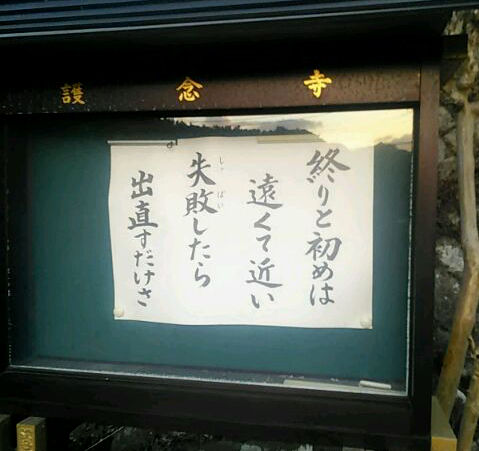 護念寺
終りと初めは
遠くて近い
失敗したら
しっぱい
出直すだけさ